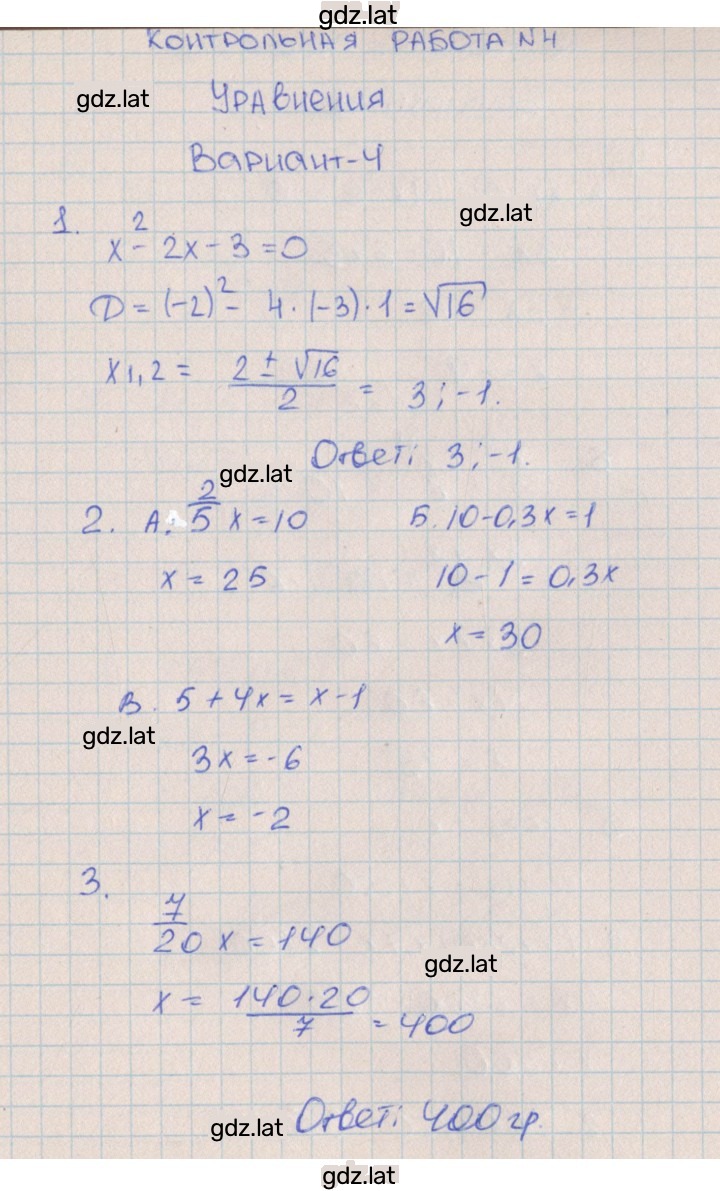 gdz.lat
КОНТРОЛЬНАЯ РАБОТА №4
gdz.lat
Уравнения
Вариант-4
gdz.lat
1. x² - 2x - 3 = 0
D = (-2)² - 4 · (-3) · 1 = √16
x1,2 = (2 ± √16)/2 = 3; -1.
Ответ: 3; -1.
gdz.lat
2. А. 2/5 x = 10
x = 25
Б. 10 - 0,3x = 1
10 - 1 = 0,3x
x = 30
В. 5 + 4x = x - 1
gdz.lat
3x = -6
x = -2
3.
7/20 x = 140
gdz.lat
x = (140 · 20)/7 = 400
Ответ: 400 гр.
gdz.lat
gdz.lat